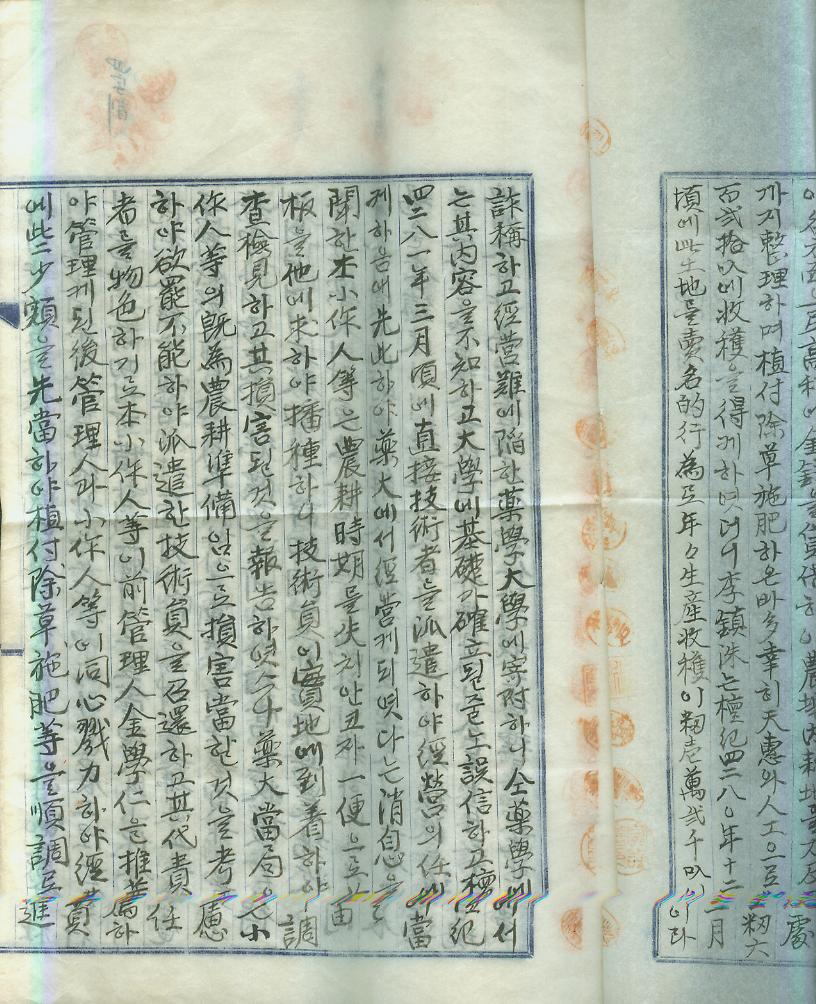 까지 整理하며 植付 除草 施肥하온바 多幸히 天惠와 人工으로 籾六
百 에 收獲을 得케하엿더니 李鎭洙는 檀紀四二八〇年十二月
頃에 此土地를 賣名的行為로 年々生産收獲이 籾壱萬弍千叺이라
詠稱하고 經營難에 陷한 藥學大學에 寄附하니 仝藥學에서
는 其內容을 不知하고 大學에 基礎가 確立된줄노 誤信하고 檀紀
四二八一年三月頃에 直接技術者를 派遣하야 經營의 任에 當
케하음에 先此하야 藥大에서 經營케되엿다는 消息을
聞한 本小作人等은 農耕時期를 失치안코자 一便으로 苗
板을 他에 求하야 播種하니 技術員이 實地에 到着하야 調
査檢見하고 其損害된것을 報告하엿스나 藥大當局은 小
作人等의 旣為農耕準備임으로 損害當한것을 考慮
하야 欲罷不能하야 派遣한 技術員을 召還하고 其代責任
者를 物色하기로 本小作人等이 前管理人金學仁을 推薦하
야 管理케된後 管理人과 小作人等이 同心戮力하야 經費
에 些少額을 先當하야 植付除草施肥等을 順調로 進